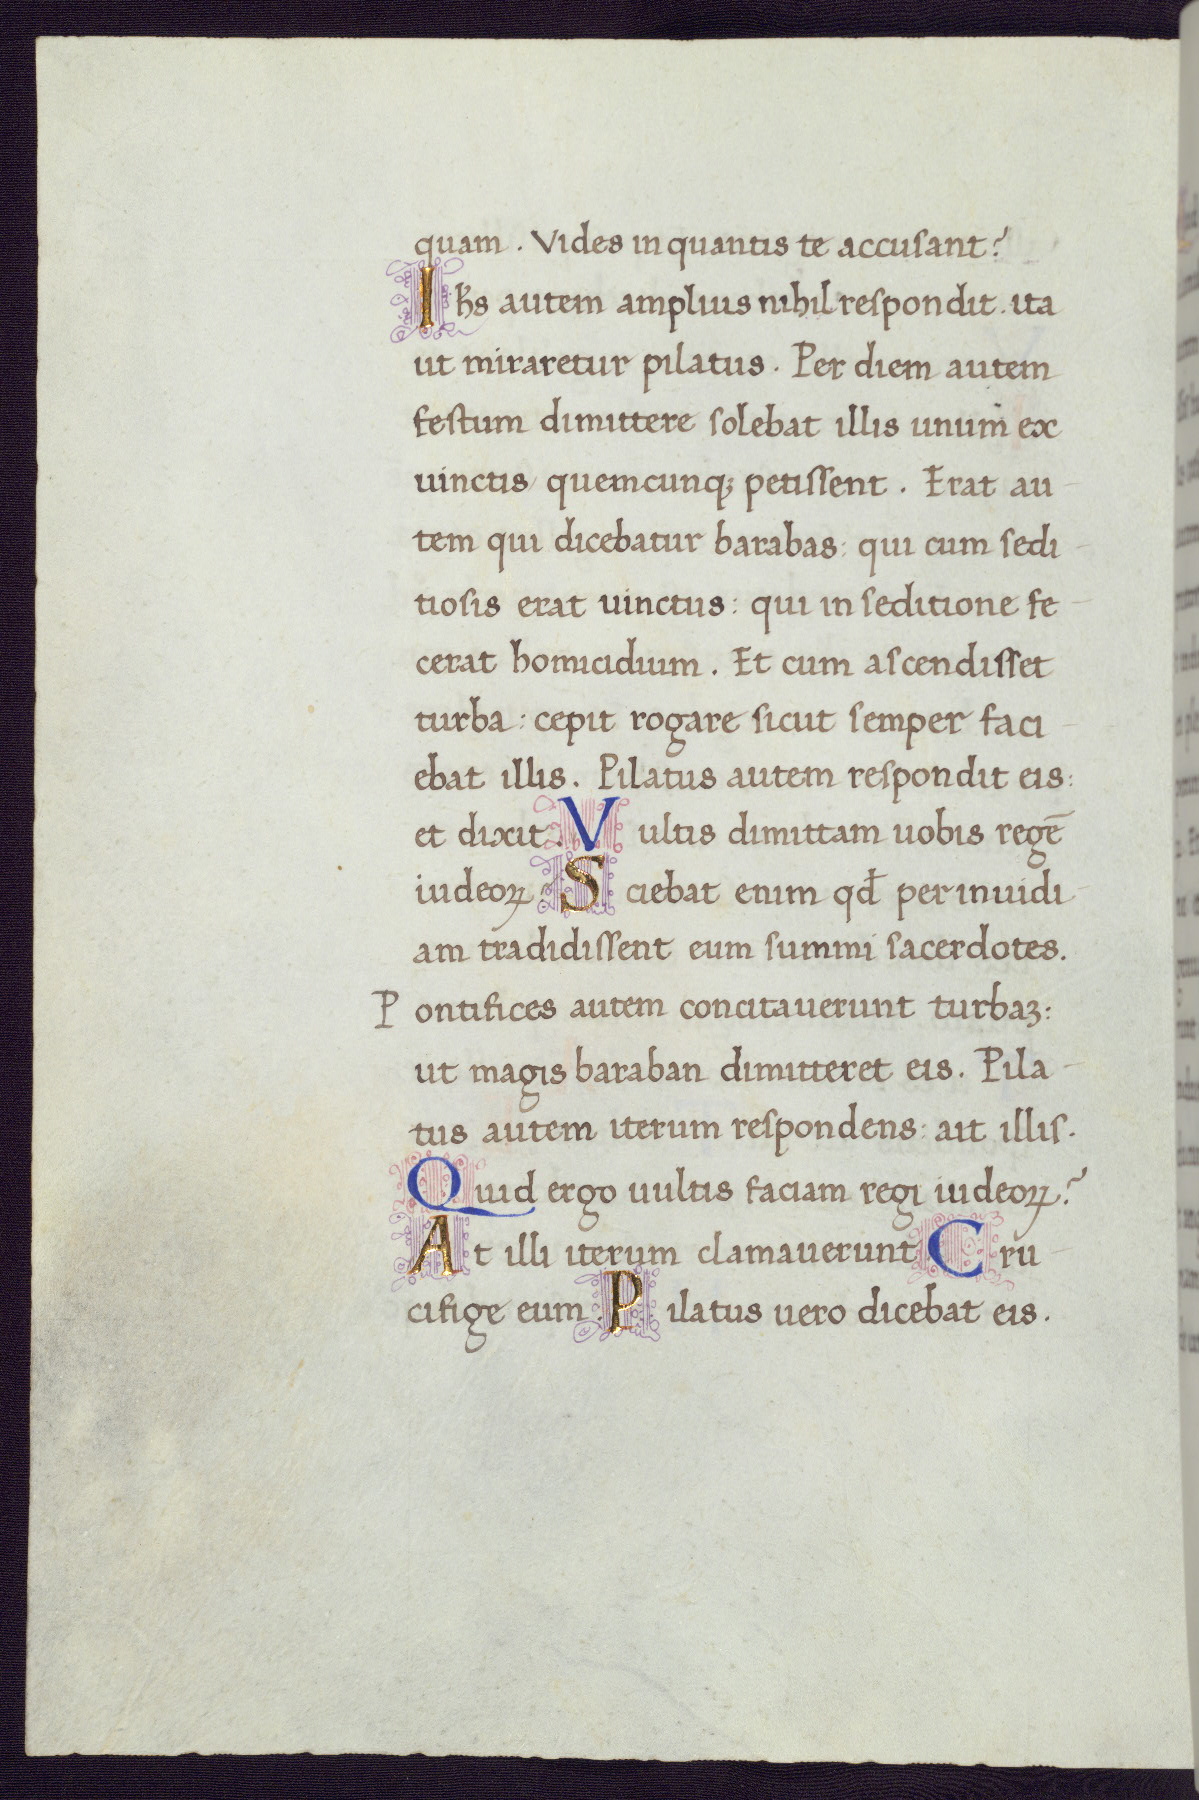 quam. Vides in quantis te accusant?
Ihs autem amplius nihil respondit. ita
ut miraretur pilatus. Per diem autem
festum dimittere solebat illis unum ex
uinctis quemcunq; petissent. Erat au
tem qui dicebatur barabas: qui cum sedi
tiosis erat uinctus: qui in seditione fe
cerat homicidium. Et cum ascendisset
turba: cepit rogare sicut semper faci
ebat illis. Pilatus autem respondit eis:
et dixit. Vultis dimittam uobis regē
iudeoꝝ? Sciebat enim qđ per inuidi
am tradidissent eum summi sacerdotes.
Pontifices autem concitauerunt turbaꝫ:
ut magis baraban dimitteret eis. Pila
tus autem iterum respondens: ait illis.
Quid ergo uultis faciam regi iudeoꝝ?
At illi iterum clamauerunt Cru
cifige eum. Pilatus uero dicebat eis.